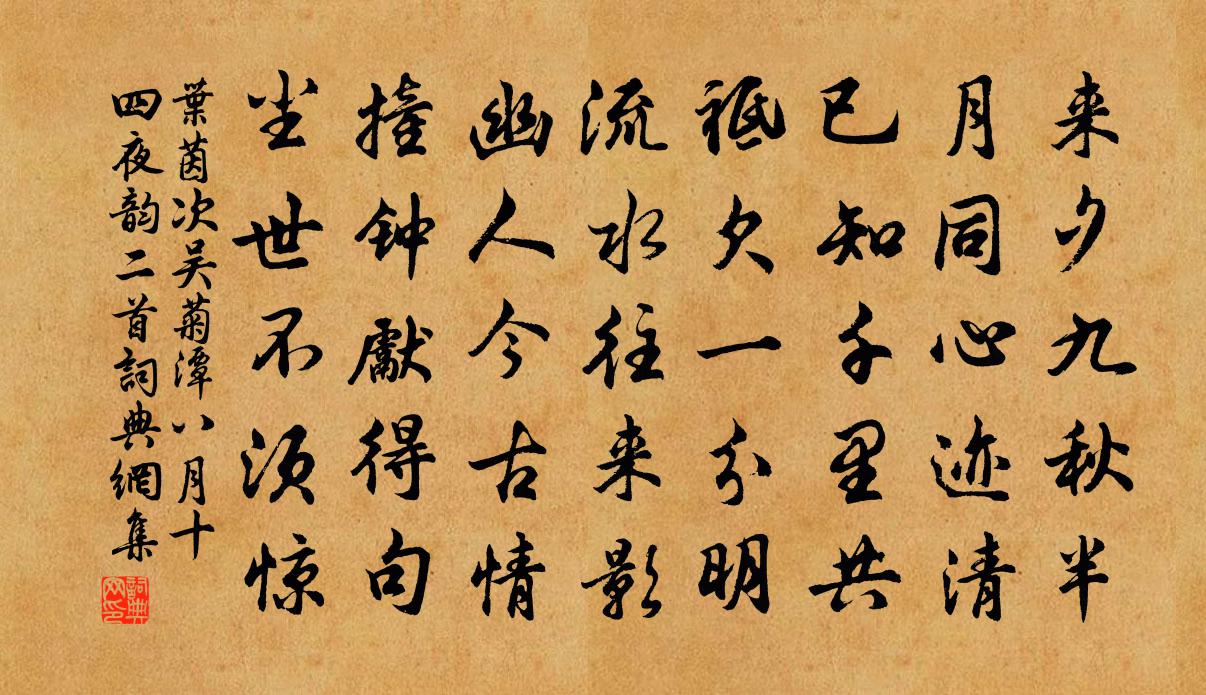 来夕九秋半
月同心迹清
已知千里共
祗欠一分明
流水往来影
幽人今古情
撞钟献得句
尘世不须惊
葉茵次吴菊潭八月十
四夜韵二首詞典網集
詞典
网印